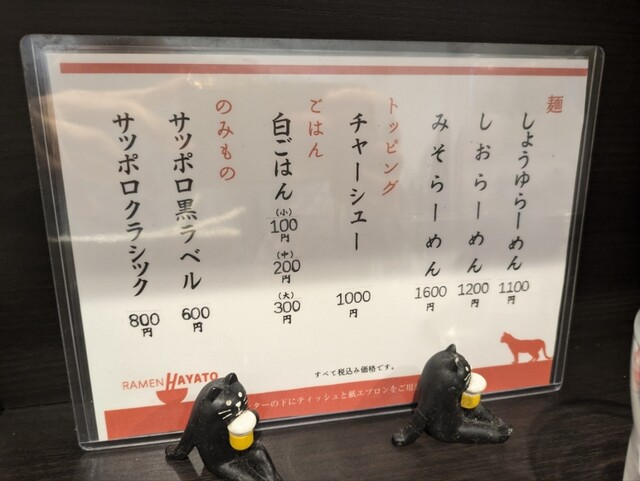 麺
しょうゆらーめん 1100円
しおらーめん 1200円
みそらーめん 1600円
トッピング
チャーシュー 1000円
ごはん
白ごはん (小) 100円 (中) 200円 (大) 300円
のみもの
サッポロ黒ラベル 600円
サッポロクラシック 800円
すべて税込み価格です。
RAMEN HAYATO
ターの下にティッシュと紙エプロンをご用